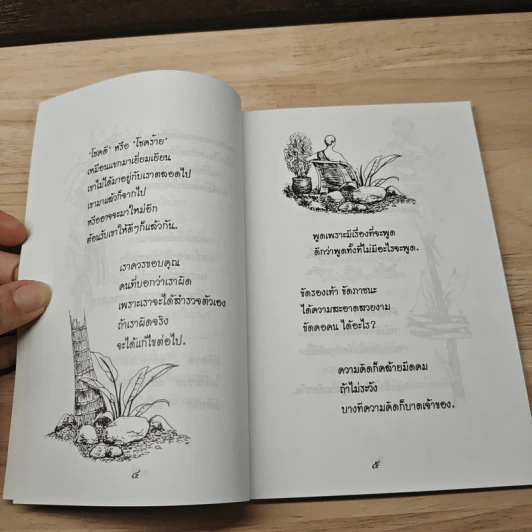 "โชคดี" หรือ "โชคร้าย"
เหมือนแขกมาเยี่ยมเยียน
เขาไม่ได้มาอยู่กับเราตลอดไป
เขามาแล้วก็จากไป
หรืออาจจะมาใหม่อีก
ต้อนรับเขาให้ดีๆก็แล้วกัน.
เราควรขอบคุณ
คนที่บอกว่าเราผิด
เพราะเราจะได้สำรวจตัวเอง
ถ้าเราผิดจริง
จะได้แก้ไขต่อไป.
๔
พูดเพราะมีเรื่องที่จะพูด
ดีกว่าพูดทั้งที่ไม่มีอะไรจะพูด.
ขัดรองเท้า ขัดภาชนะ
ได้ความสะอาดสวยงาม
ขัดคอคน ได้อะไร?
ความคิดก็คล้ายมีดคม
ถ้าไม่ระวัง
บางทีความคิดก็บาดเจ้าของ.
๕